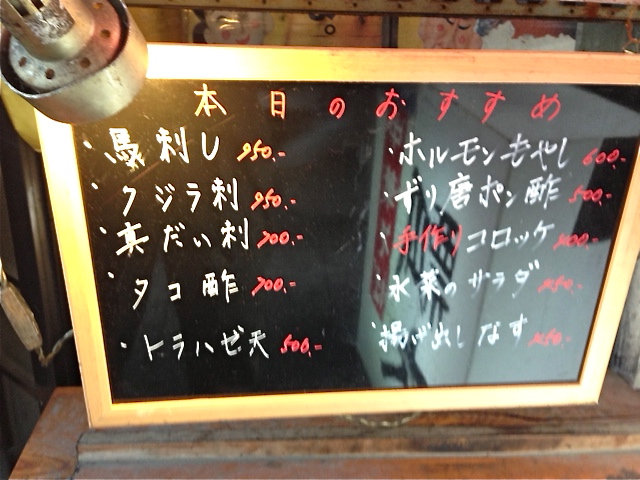 本日のおすすめ
・馬刺し 950.-
・クジラ刺 950.-
・真だい刺 700.-
・タコ酢 700.-
・トラハゼ天 500.-
・ホルモンもやし 600.-
・ずり磨ポン酢 500.-
・手作りコロッケ
・水菜のサラダ
・揚げ出しなす